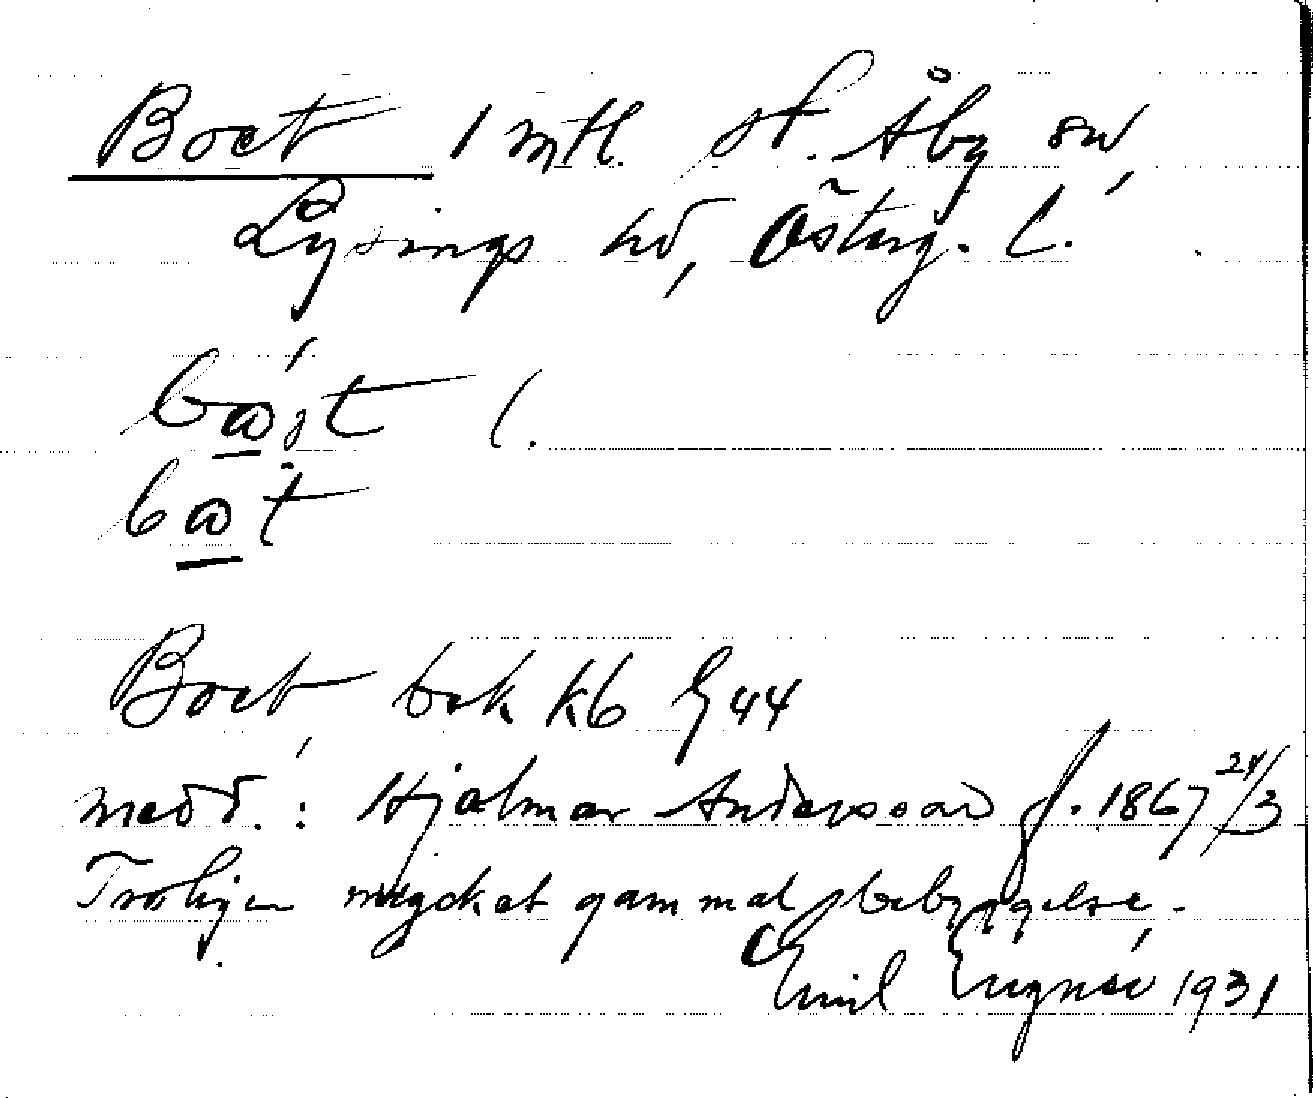 Boet 1 mtl. St. Åby sn,
Lysings hd, Österg. l.
Boet, bok kb G 44
medd.: Hjalmar Andersson f. 1867 24/3
Troligen mycket gammal bebyggelse.
Emil 1931